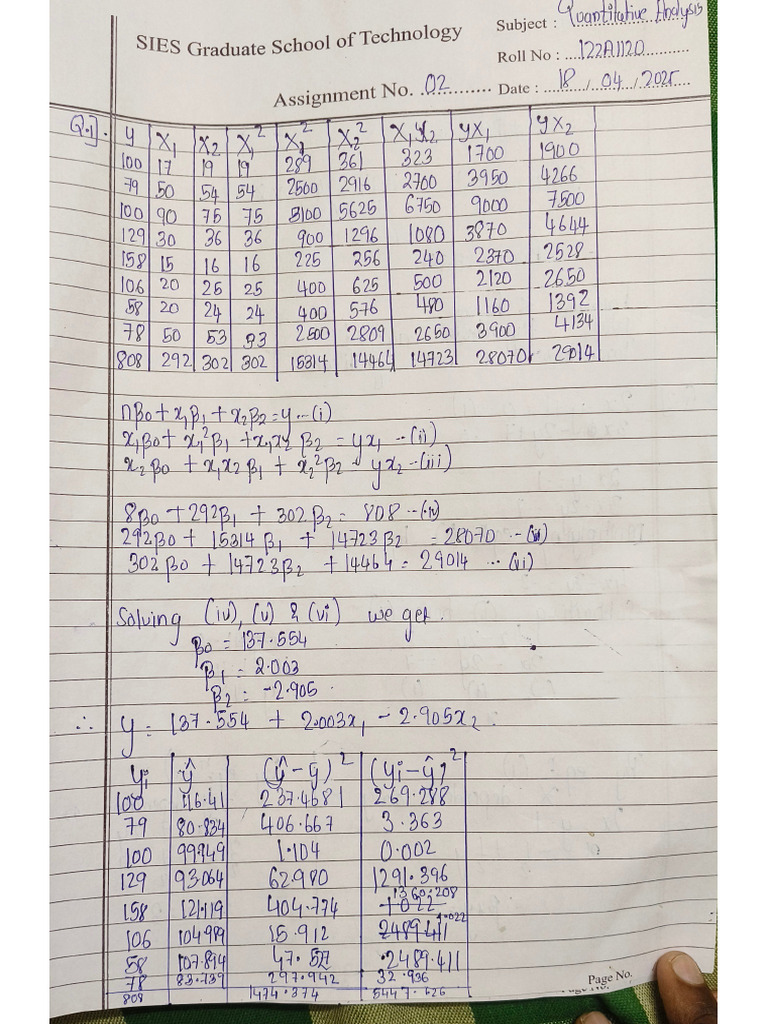 SIES Graduate School of Technology
Subject : Quantitative Analysis
Roll No : 122A1120
Assignment No. 02 Date : 18 / 04 / 2025
Q.1]. y x₁ x₂ x₁² x₁² x₂² x₁x₂ yx₁ yx₂
100 17 19 19 289 361 323 1700 1900
79 50 54 54 2500 2916 2700 3950 4266
100 90 75 75 8100 5625 6750 9000 7500
129 30 36 36 900 1296 1080 3870 4644
158 15 16 16 225 256 240 2370 2528
106 20 25 25 400 625 500 2120 2650
58 20 24 24 400 576 480 1160 1392
78 50 53 53 2500 2809 2650 3900 4134
808 292 302 302 15314 14464 14723 28070 29014
nβ0 + x₁β₁ + x₂β₂ = y --(i)
x₁β0 + x₁²β₁ + x₁x₂ β₂ = yx₁ --(ii)
x₂β0 + x₁x₂ β₁ + x₂²β₂ = yx₂ --(iii)
8β0 + 292β₁ + 302β₂ = 808 --(iv)
292β0 + 15314 β₁ + 14723β₂ = 28070 --(v)
302β0 + 14723β₂ + 14464 = 29014 --(vi)
Solving (iv), (v) & (vi) we get.
β0 = 137.554
β₁ = 2.003
β₂ = -2.905.
∴ y = 137.554 + 2.003x₁ - 2.905x₂.
yi ŷ (ŷ-ȳ)² (yi-ŷ)²
100 116.41 237.4681 269.288
79 80.834 406.667 3.363
100 99949 1.104 0.002
129 93064 62.980 1291.396
1360.208
158 121.119 404.774
1.022
106 104989 15.912
58 107.894 47.527 2489.411
78 83.739 297.942 32.936
808 1474.374 5447.626
Page No.